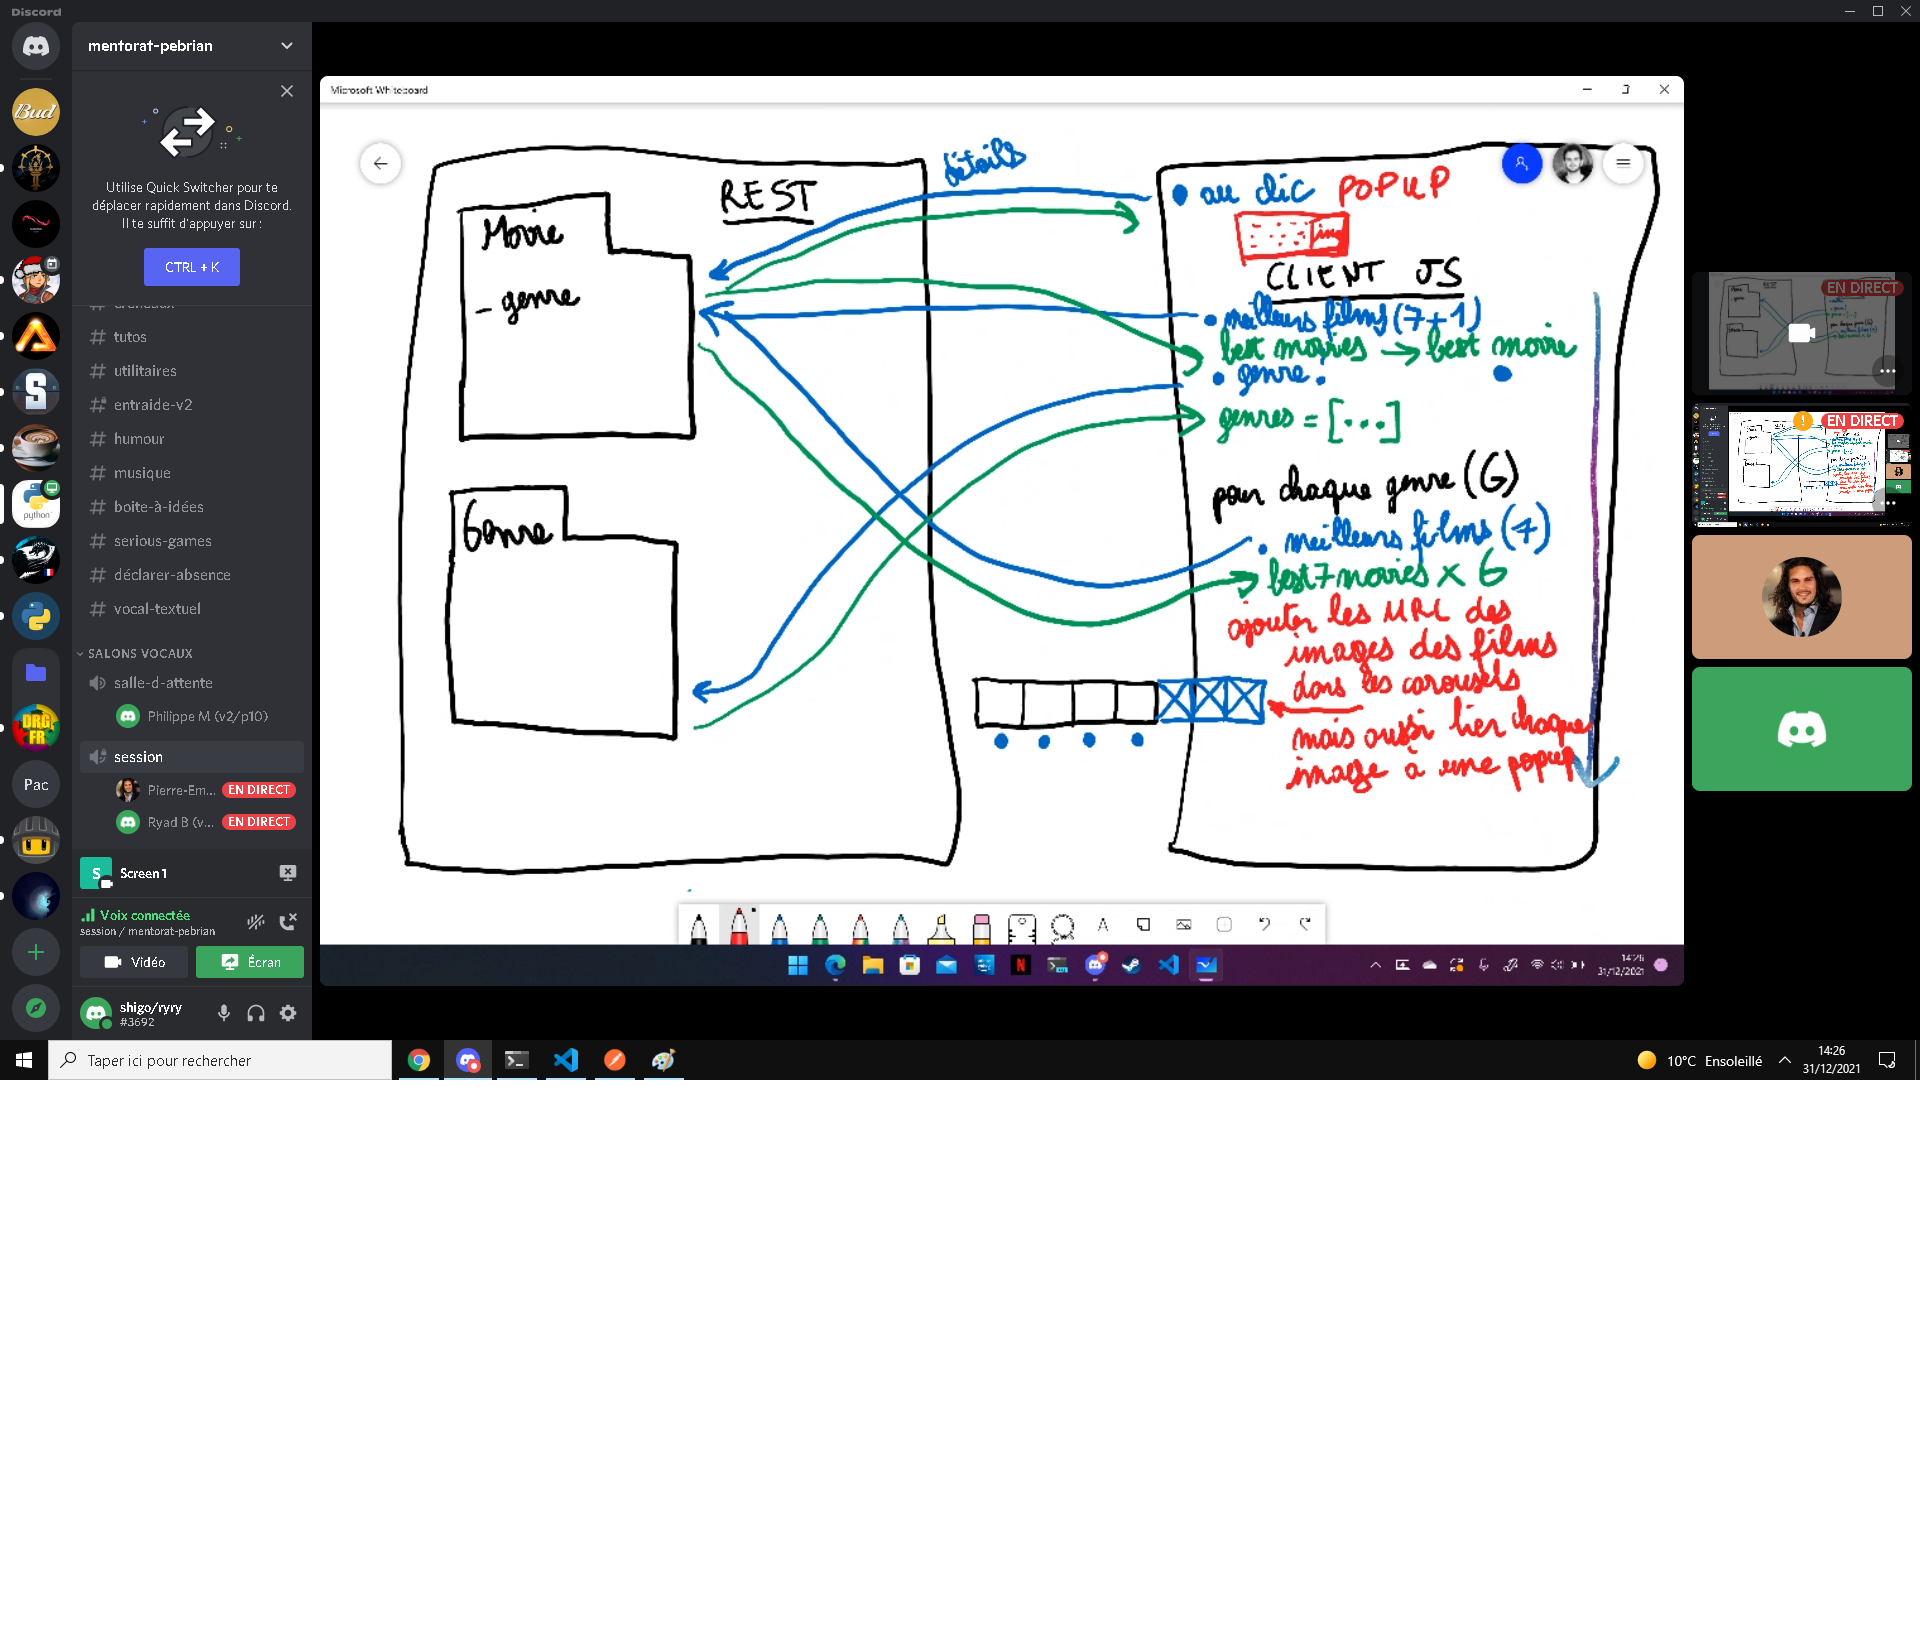 Discord
mentorat-pebrian
Utilise Quick Switcher pour te
déplacer rapidement dans Discord.
Il te suffit d'appuyer sur :
CTRL + K
tutos
utilitaires
entraide-v2
humour
musique
boite-à-idées
serious-games
déclarer-absence
vocal-textuel
SALONS VOCAUX
salle-d-attente
Philippe M (v2/p10)
session
Pierre-Em... EN DIRECT
Ryad B (v... EN DIRECT
Screen 1
Voix connectée
session / mentorat-pebrian
Vidéo
Écran
shigo/ryry
#3692
Bud
python
DRG
FR
Pac
Microsoft Whiteboard
REST
Movie
- genre
Genre
détails
• au clic POPUP
img
CLIENT JS
• meilleurs films (7+1)
best movies → best movie
• genre :
genres = [...]
pour chaque genre (6)
• meilleurs films (7)
best 7 movies x 6
ajouter les URL des
images des films
dans les carousels
mais aussi lier chaque
image à une popup
14:26
31/12/2021
EN DIRECT
EN DIRECT
Taper ici pour rechercher
10°C Ensoleillé
14:26
31/12/2021